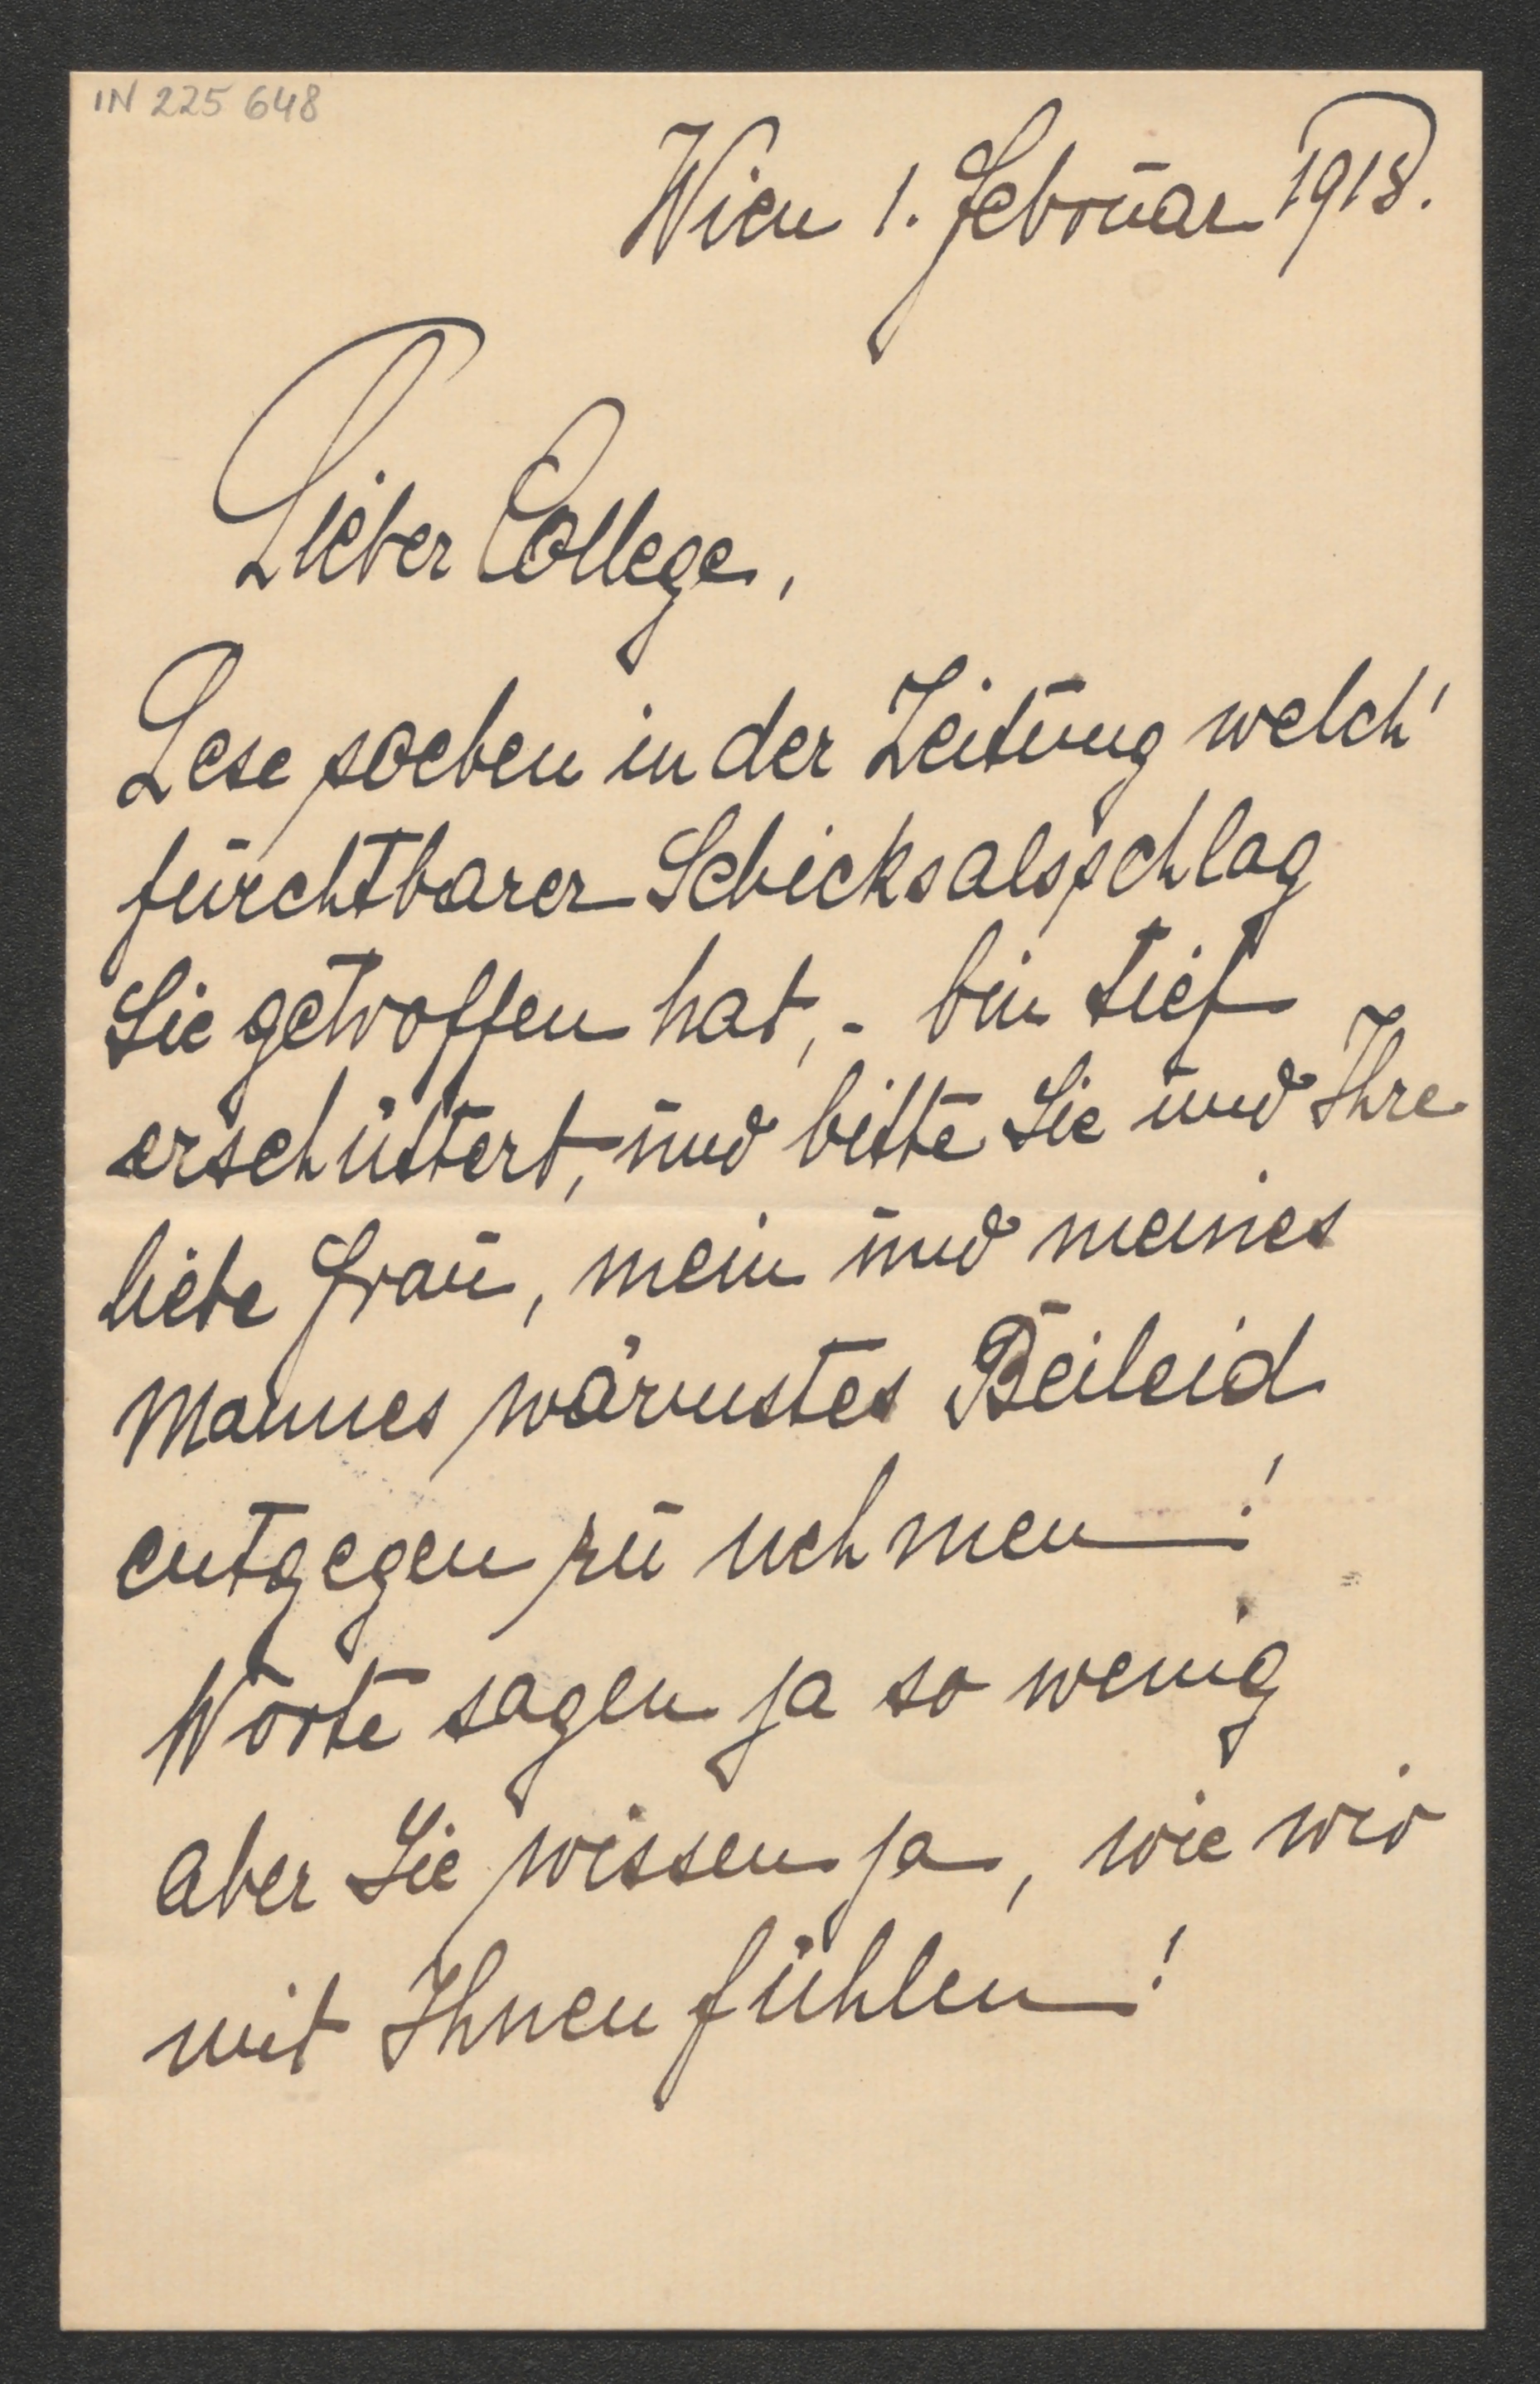 IN 225 648
Wien 1. Februar 1918.
Lieber College,
Lese soeben in der Zeitung welch'
furchtbarer Schicksalsschlag
Sie getroffen hat, - bin tief
erschüttert, und bitte Sie und Ihre
liebe Frau, mein und meines
Mannes wärmstes Beileid
entgegen zu nehmen!
Worte sagen ja so wenig
aber Sie wissen ja, wie wir
mit Ihnen fühlen!